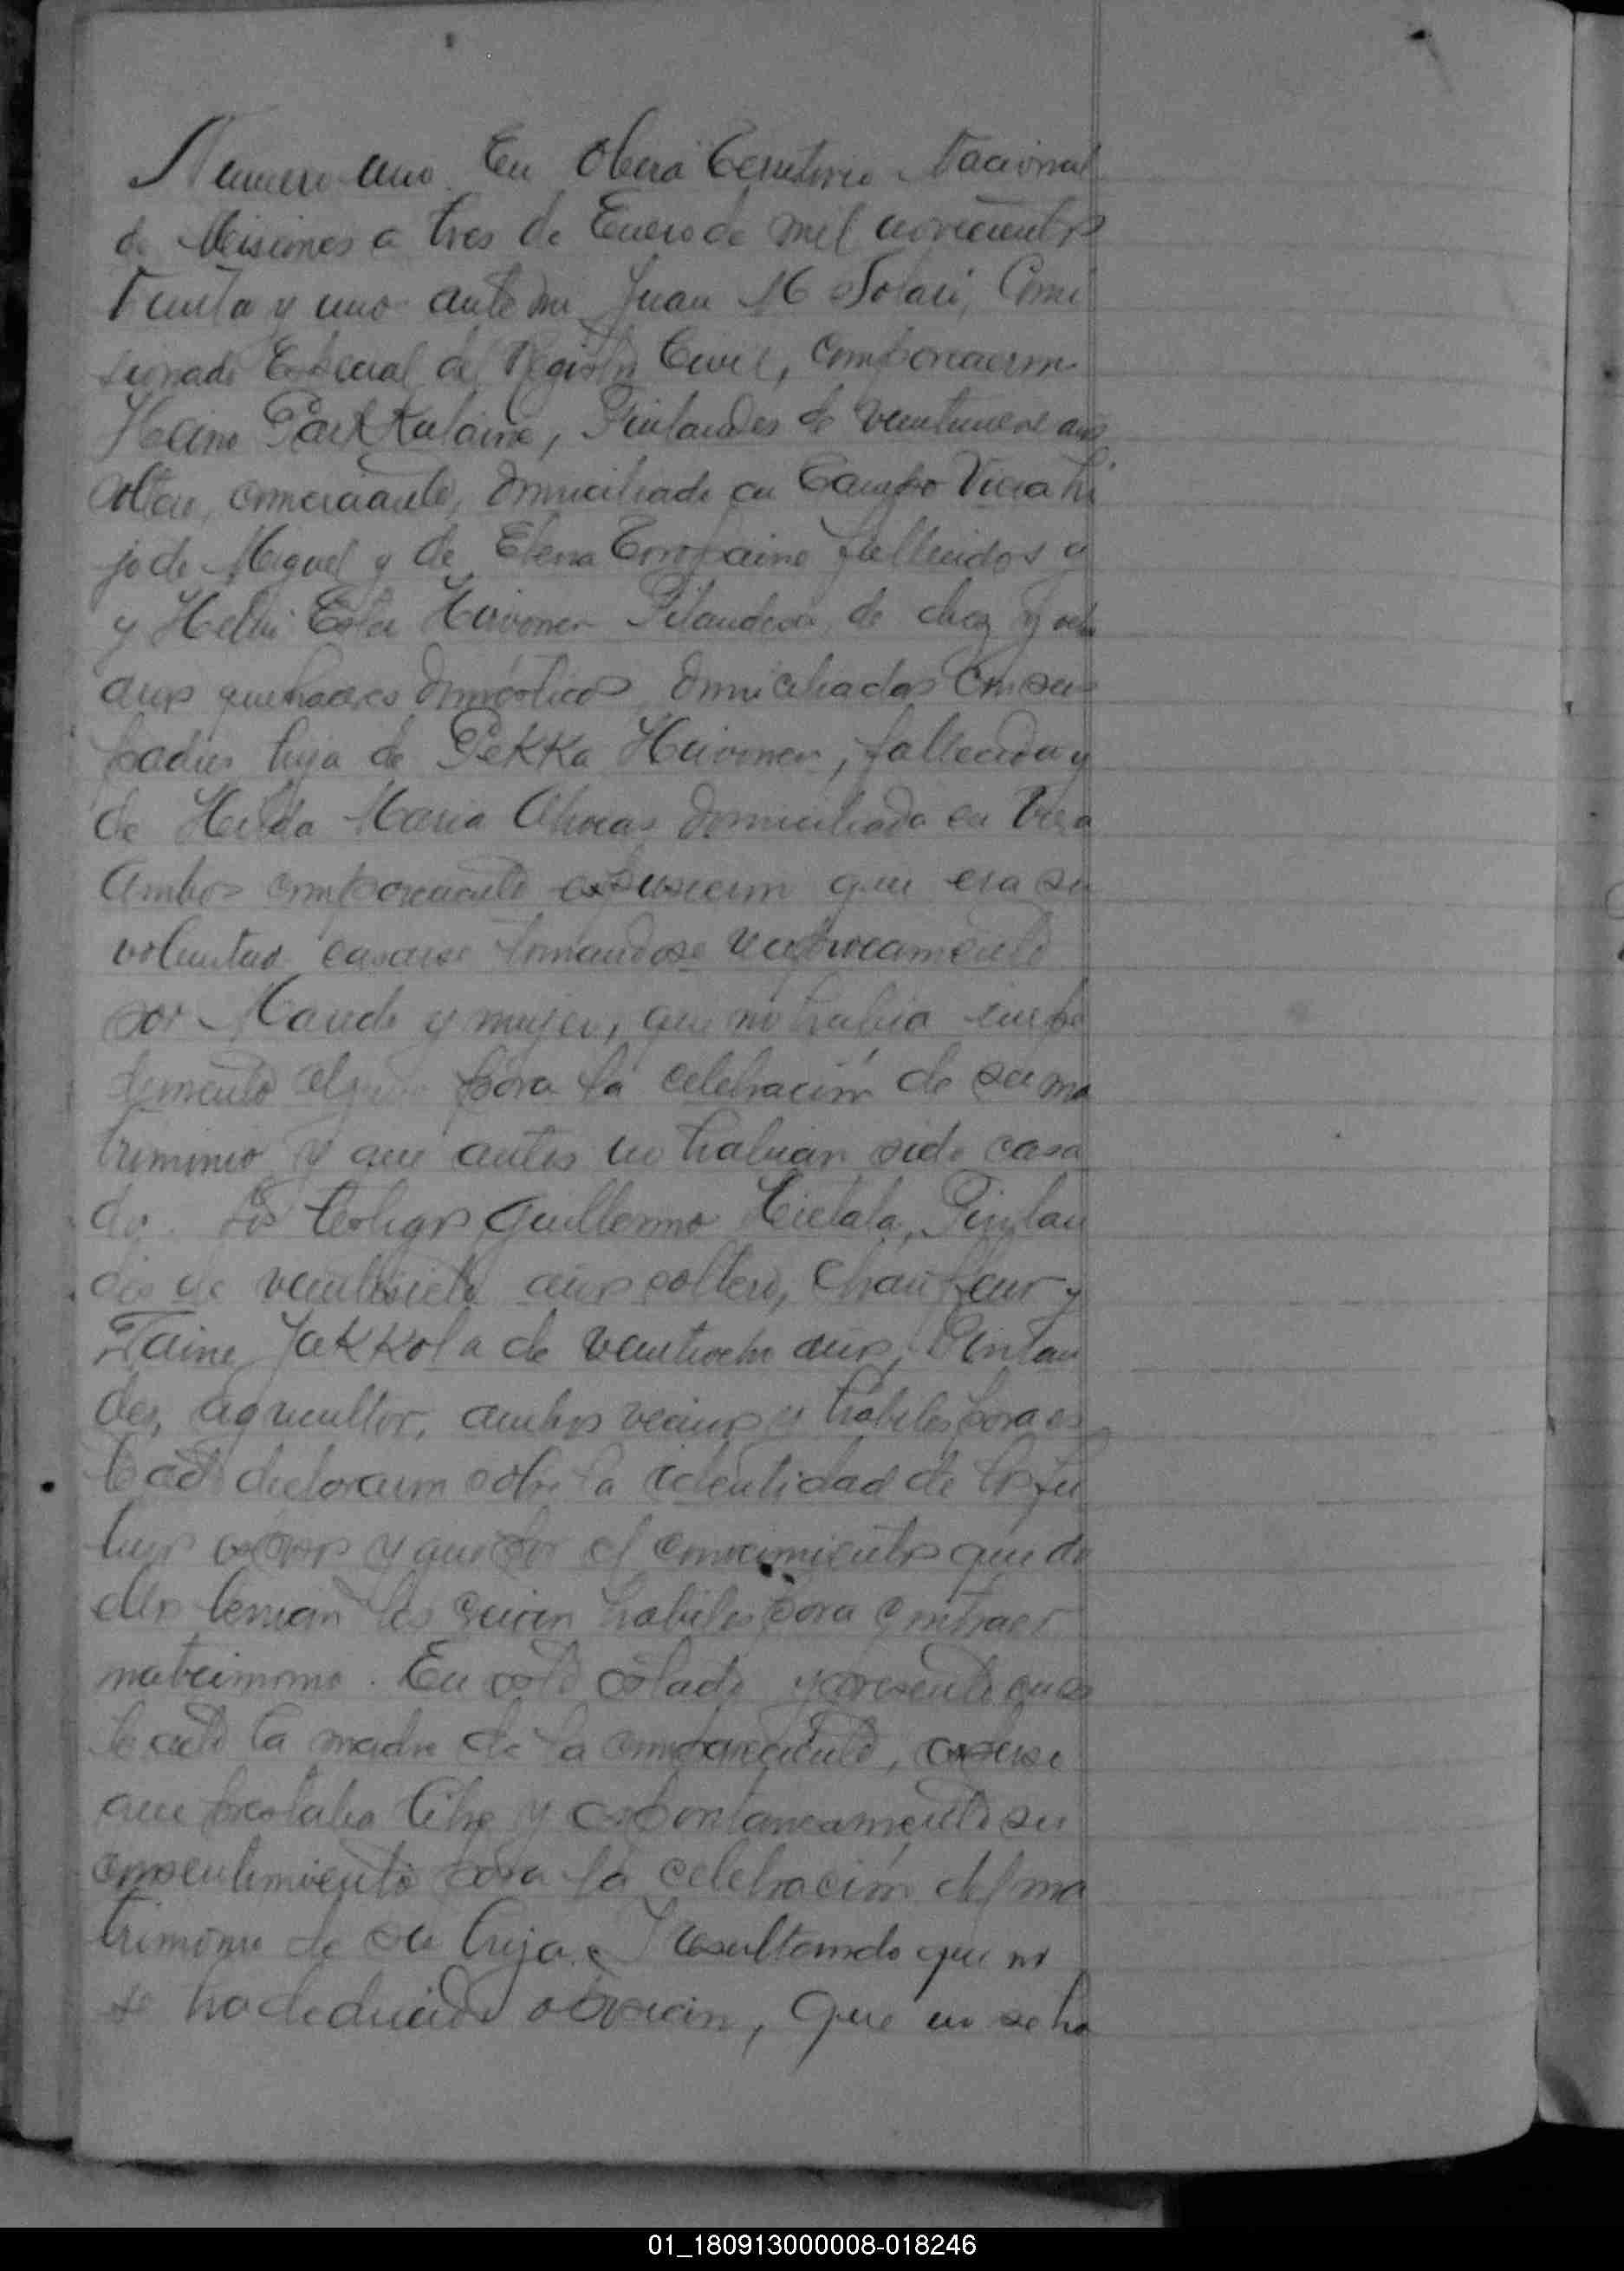 Numero uno. En Oberá Territorio Nacional
de Misiones a tres de Enero de mil novecientos
treinta y uno ante mi Juan M Solari, Comi
sionado Especial del Registro Civil, comparecieron
Heino Parkkulaine, Finlandes de veintinueve años
soltero, comerciante, domiciliado en Campo Viera hi
jo de Miguel y de Elena fallecidos y
y Helbi Ester Hirvonen Filandesa, de diez y ocho
años quehaceres domésticos, domiciliada con sus
padres hija de Pekka Hirvonen, fallecido y
de Hilda Maria domiciliada en Viera
Ambos compareciente expusieron que era su
voluntad casarse tomandose reciprocamente
por Marido y mujer, que no habia impe
dimento alguno para la celebración de su ma
trimonio y que antes no habian sido casa
do. Los testigos Guillermo Hietala, Finlan
des de veintisiete años soltero, Chauffeur y
Taine Jakkola de veintiocho años, Finlan
des, agricultor, ambos vecinos y habiles para es
te acto declararon sobre la identidad de los fu
turos esposos y que por el conocimientos que de
ellos tenian los creian habiles para contraer
matrimonio. En este estado y presente en es
te acto la madre de la compareciente, expuso
que prestaba libre y espontaneamente su
consentimiento para la celebración del ma
trimonio de su hija. Y resultando que no
se ha deducido oposicion, que no se ha
01_180913000008-018246